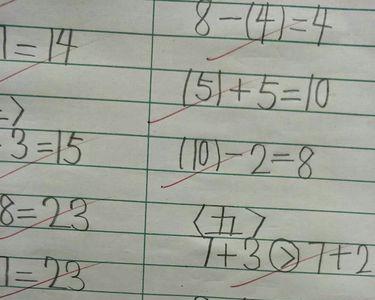 8-(4)=4
1=14
(5)+5=10
3=15
(10)-2=8
8=23
〈五〉
7+3>7+2
1=23